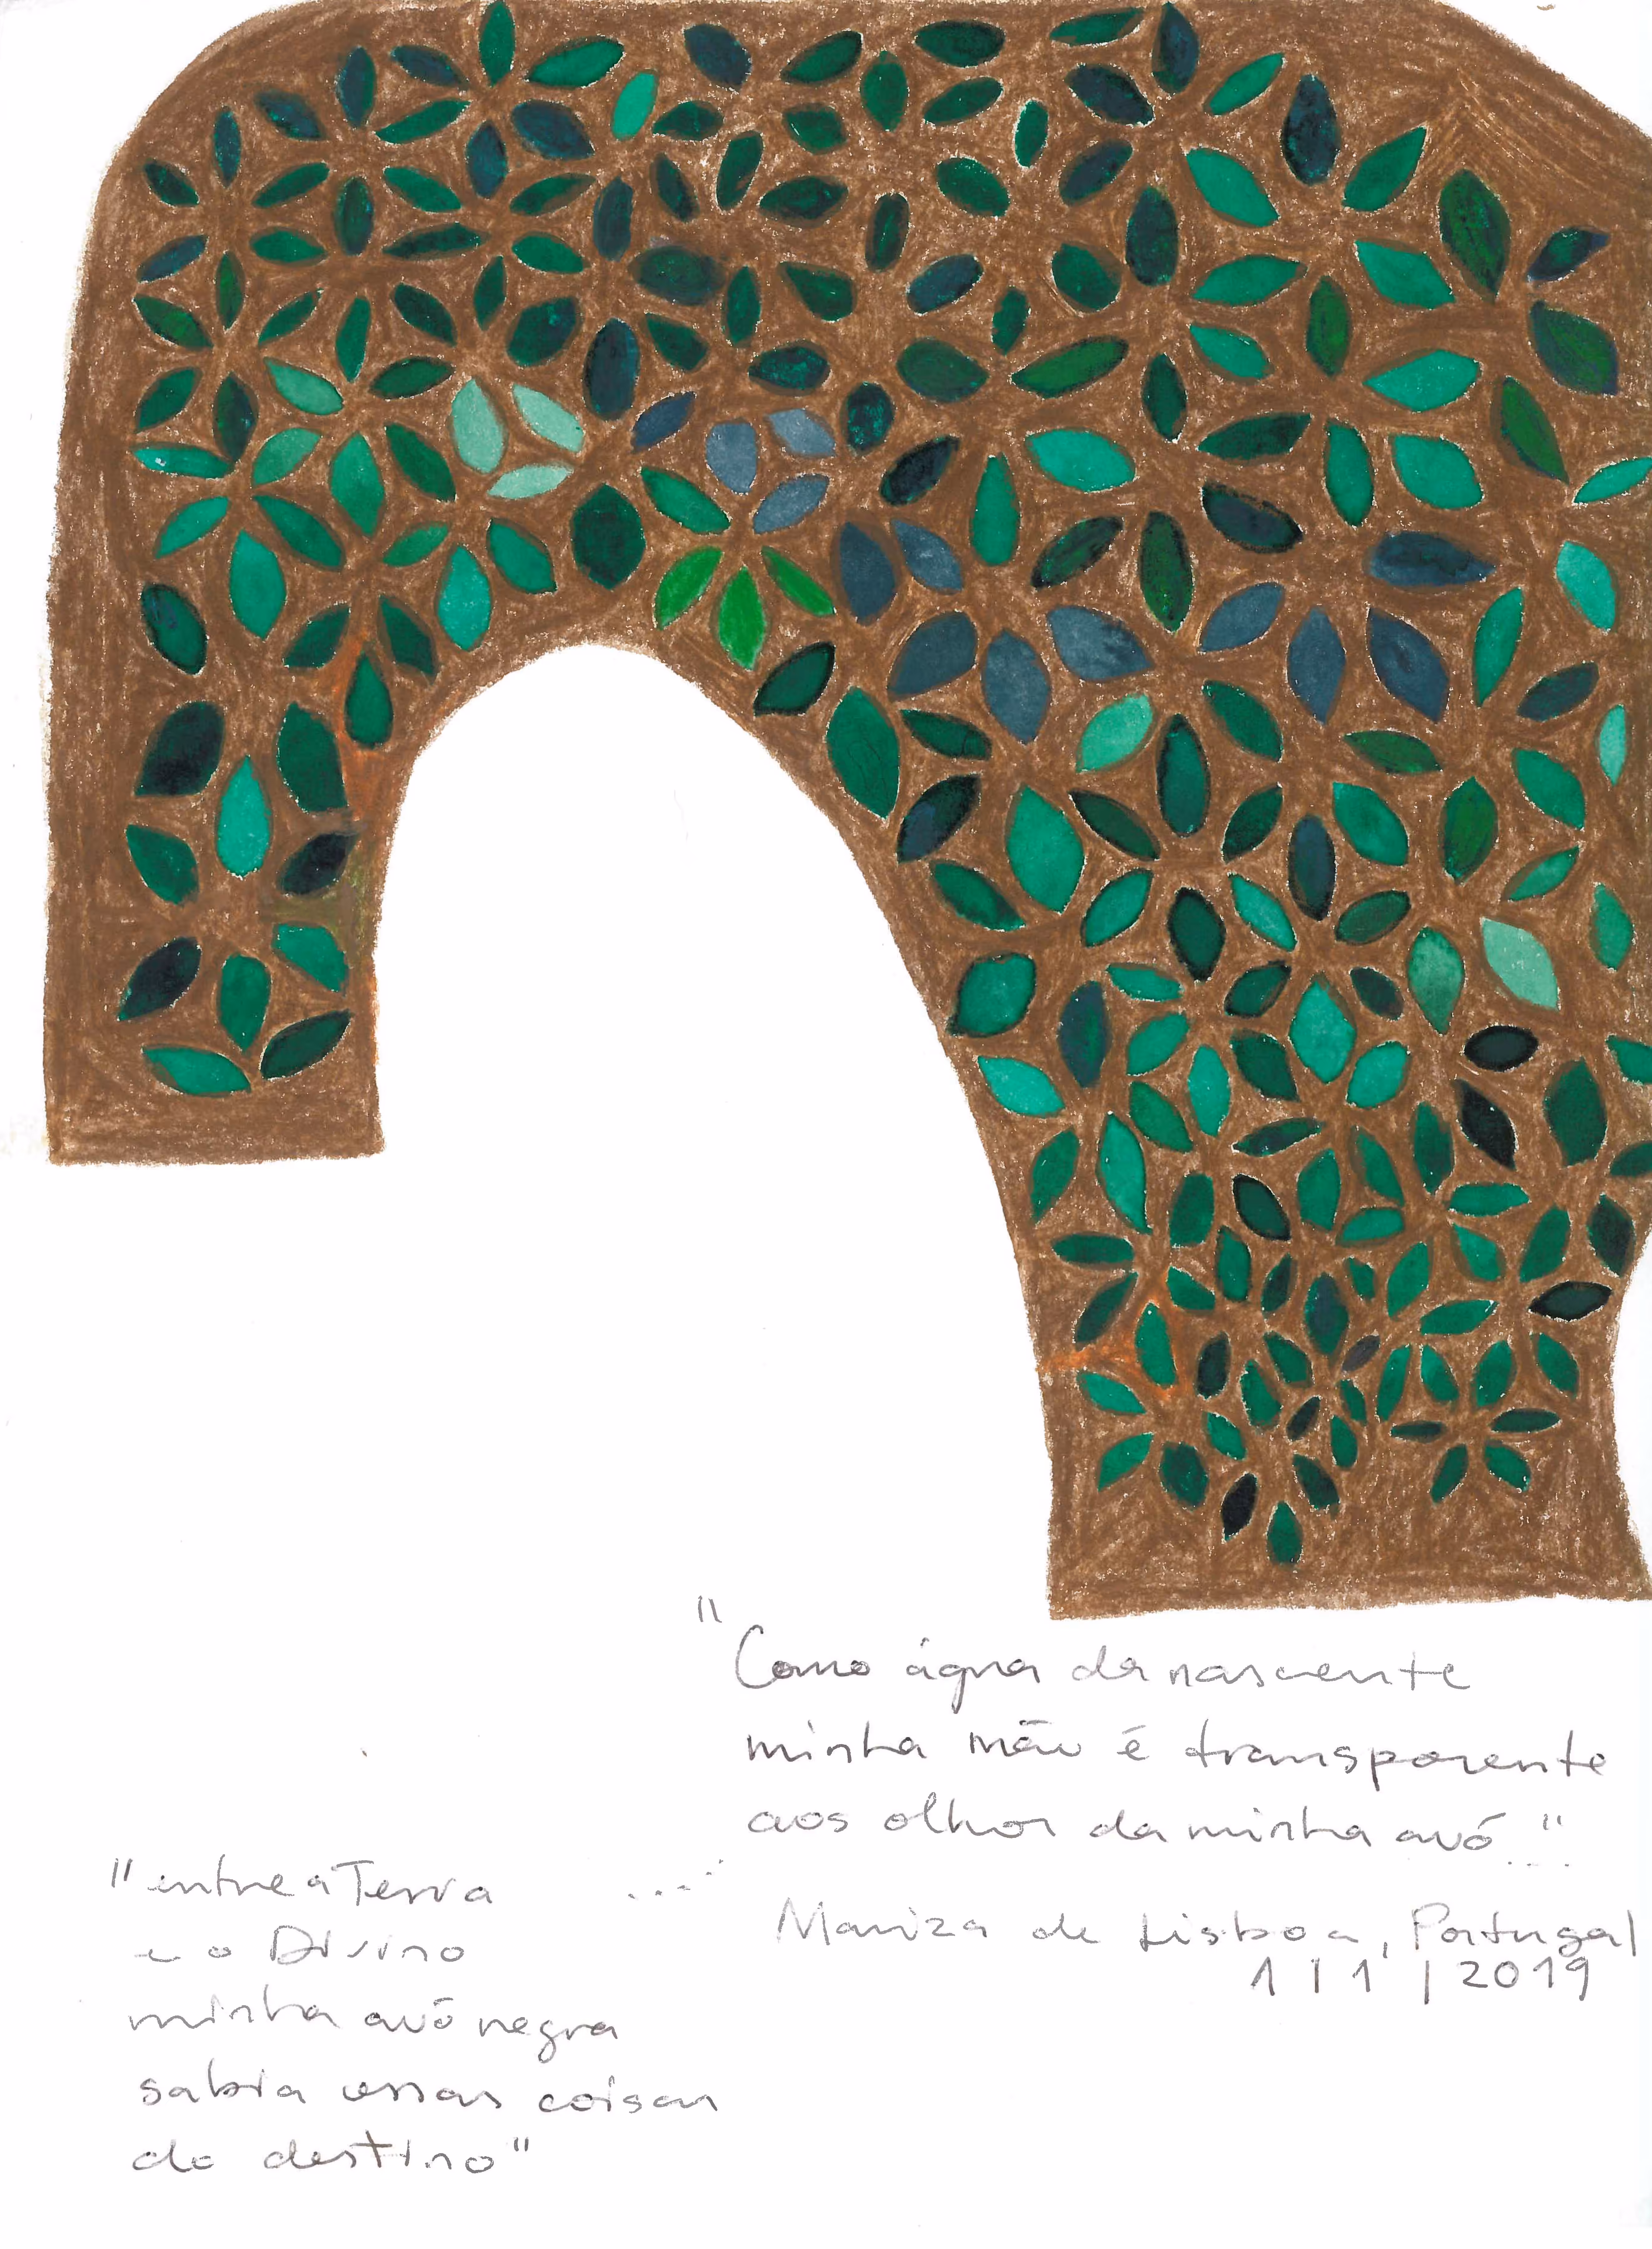 "Como água da nascente
minha mão é transparente
aos olhos da minha avó...."
"entre a Terra ....
e o Divino
minha avó negra
sabia essas coisas
do destino"
Mariza de Lisboa, Portugal
1 | 1 | 2019